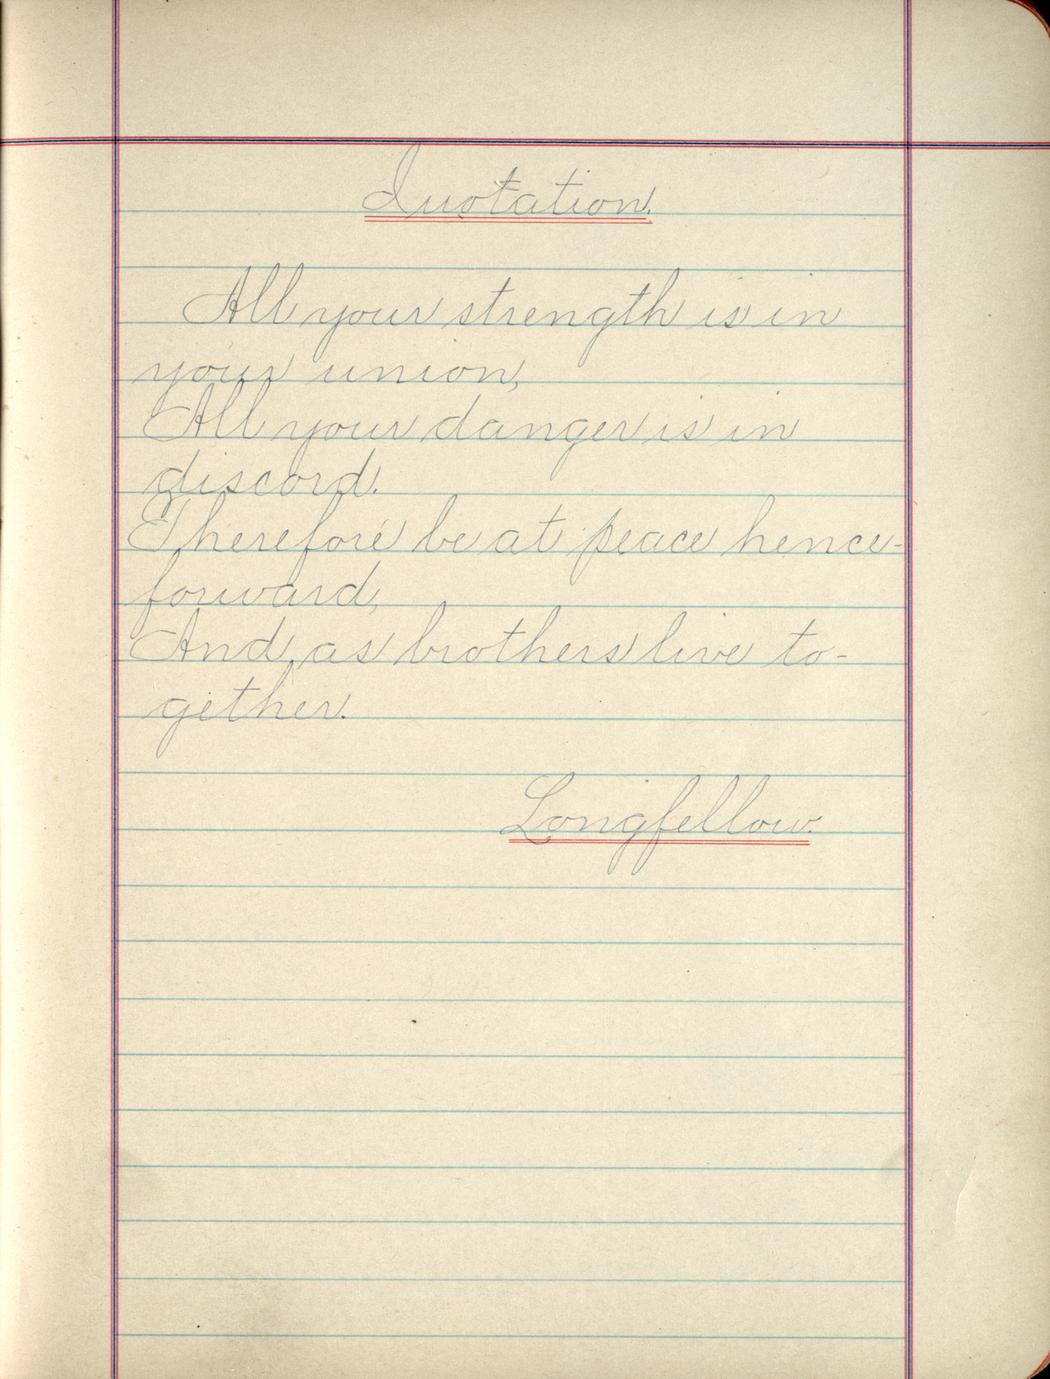 Quotation.
All your strength is in
your union,
All your danger is in
discord.
Therefore be at peace hence-
forward,
And as brothers live to-
gether.
Longfellow.